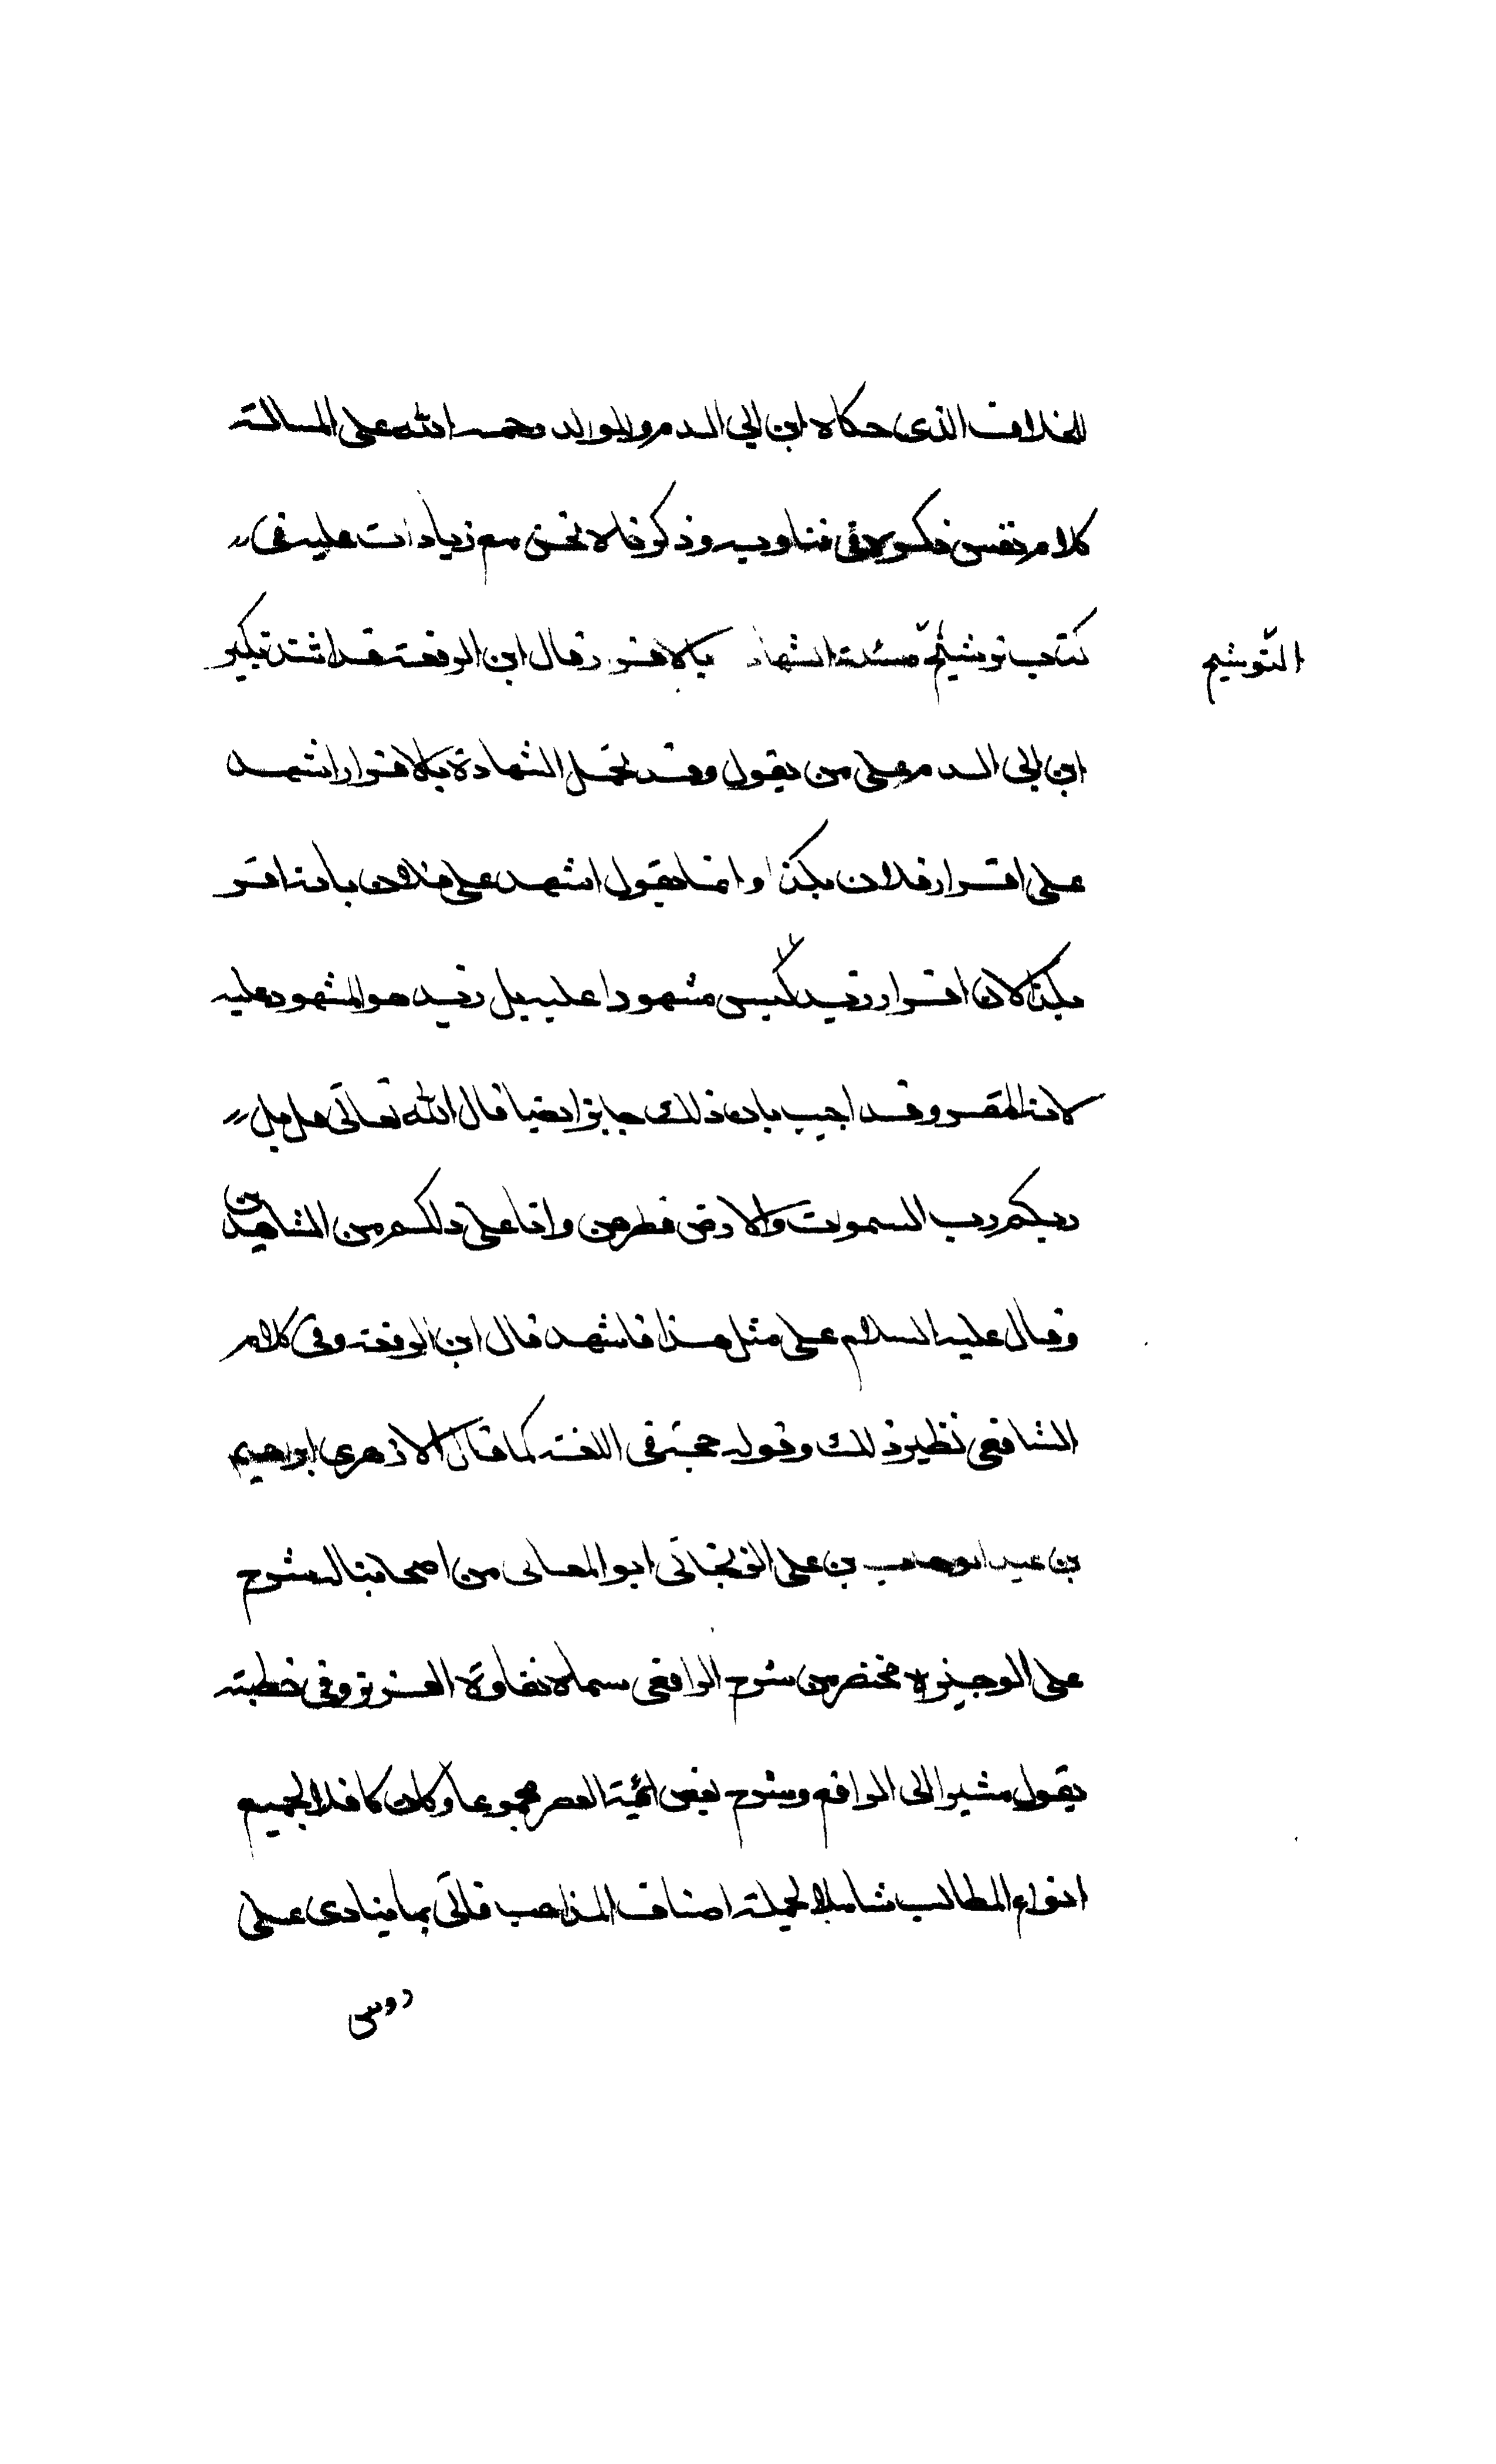 الخلاف الذى حكاه ابن ابي الدم وللوالد رحمه الله على المسالة
كلام نفيس ذكره فى فتاويه وذكرناه نحن مع زيادات عليه فى
كتاب توشيح مسئلة الشهاد بالاقرر قال ابن الرفعة قد اشتد نكير
التوشيح
ابن ابي الدم على من يقول وقد تحمل الشهادة بالاقرار اشهد
على اقرار فلان بكذا وانما يقول اشهد على فلان بانه اقر
بكذا لان اقرار زيد ليس مشهودا عليه بل زيد هو المشهود عليه
لانه المقر وقد اجيب بان ذلك جايز ايضا قال الله تعالى قل بل
ربكم رب السموت والارض فطرهن وانا على ذلكم من الشاهدين
وقال عليه السلام على مثل هذا فاشهد قال ابن الرفعة وفى كلام
الشافعى نظير ذلك وقوله حجة فى اللغة كما قال الازهرى ابراهيم
بن عبد الوهاب بن على الزنجانى ابو المعالى من اصحابنا له شرح
على الوجيز مختصر من شرح الرافعى سماه نقاوة العزيز وفى خطبته
يقول مشيرا الى الرافعى وشرح بعض ائمة العصر مجموعا وكان كافلا لجميع
انواع المطالب شاملا لجملة اصناف المذاهب فاتى بما ينادى على